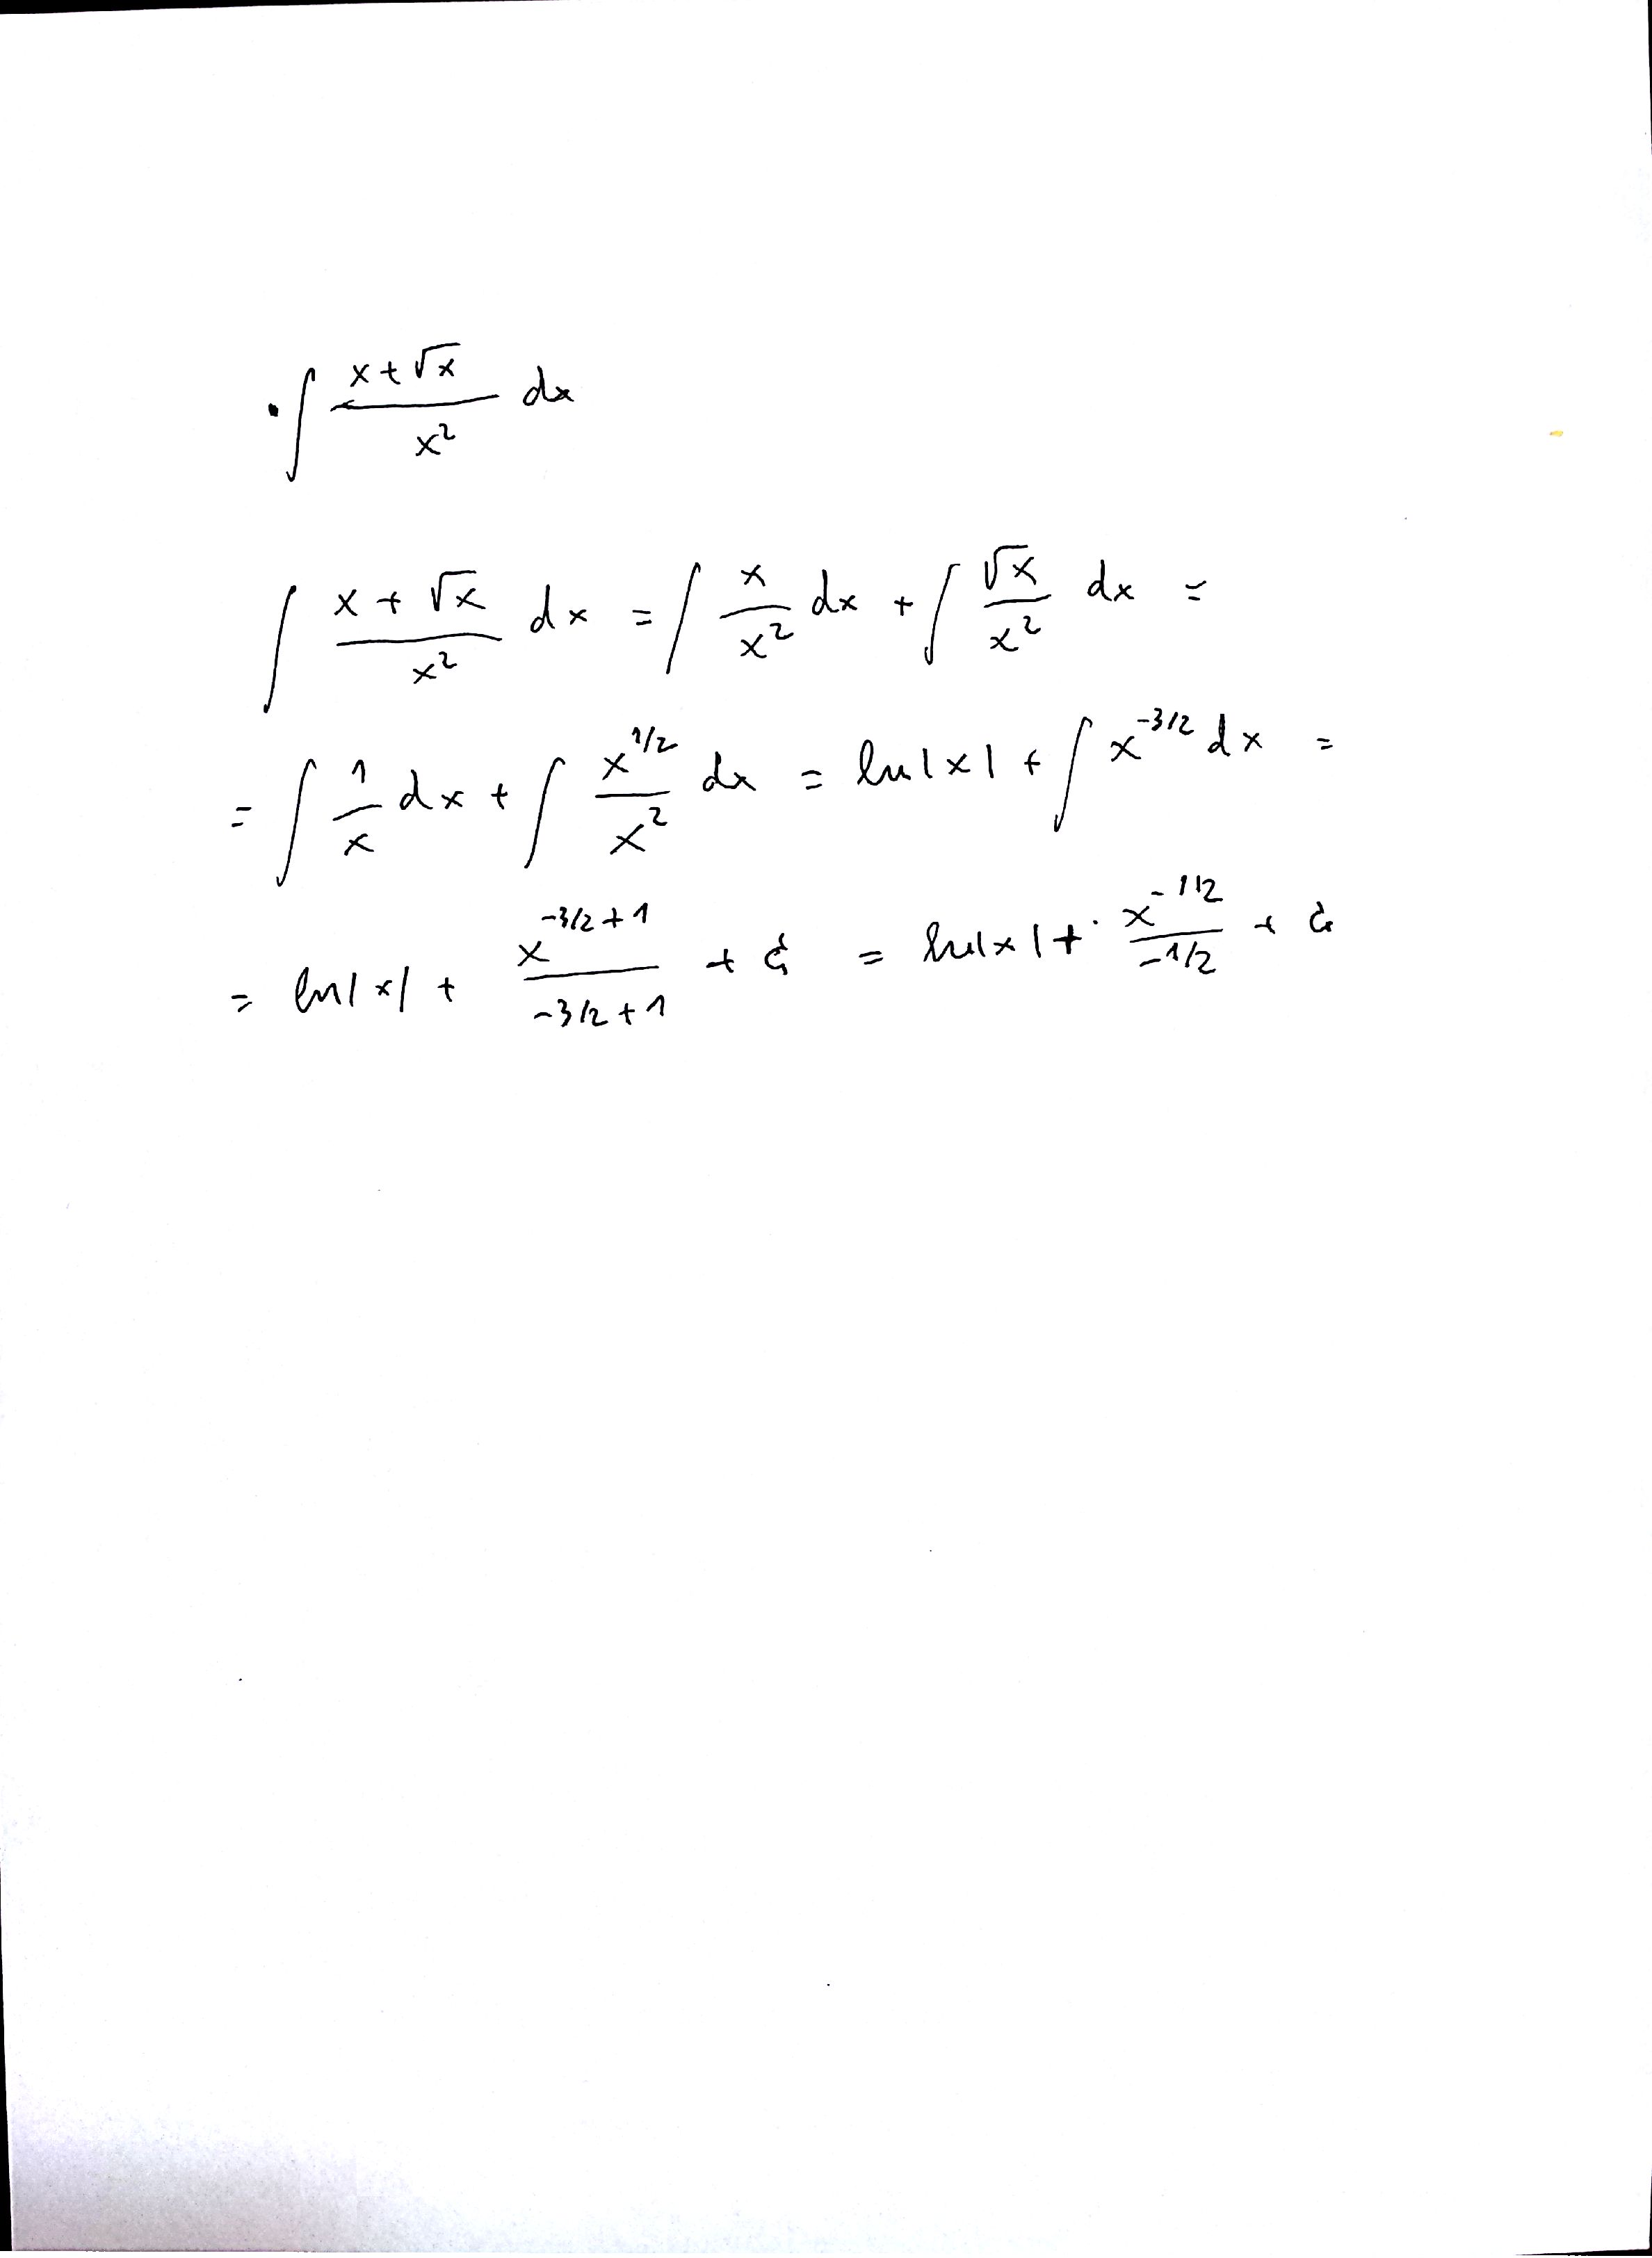 · ∫ (x + √x) / x² dx
∫ (x + √x) / x² dx = ∫ x/x² dx + ∫ √x/x² dx =
= ∫ 1/x dx + ∫ x^(1/2) / x² dx = ln|x| + ∫ x^(-3/2) dx =
= ln|x| + x^(-3/2+1) / (-3/2+1) + C = ln|x| + x^(-1/2) / (-1/2) + C